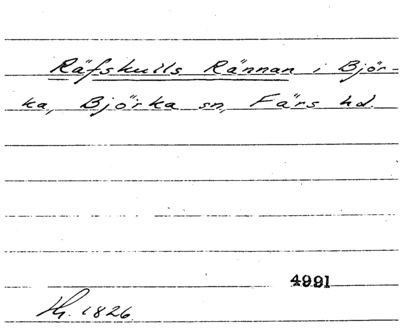 Räfskulls Rännan i Björ-
ka, Björka sn, Färs hd.
4991
Lh. 1826.